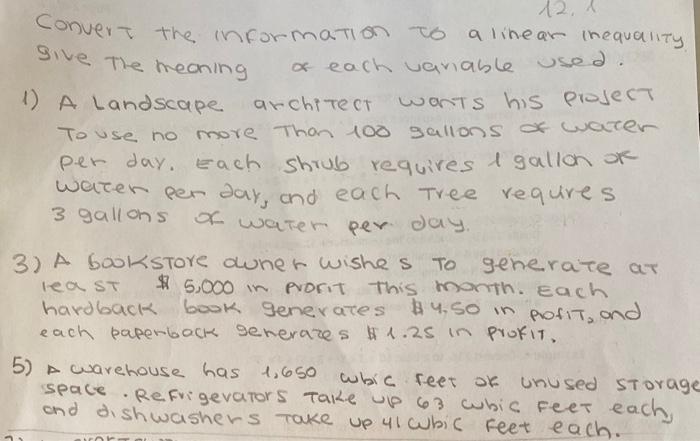 12.1
Convert the information to a linear inequality
Give The meaning of each variable used.
1) A Landscape architect wants his project
To use no more Than 100 gallons of water
per day. Each shrub requires 1 gallon of
water per day, and each Tree requres
3 gallons of water per day.
3) A bookstore owner wishes to generate at
least $5,000 in profit this month. Each
hardback book generates $4.50 in profit, and
each paperback generates $1.25 in profit.
5) A warehouse has 1,650 cubic feet of unused storage
space. Refrigerators take up 63 cubic feet each,
and dishwashers take up 41 cubic feet each.